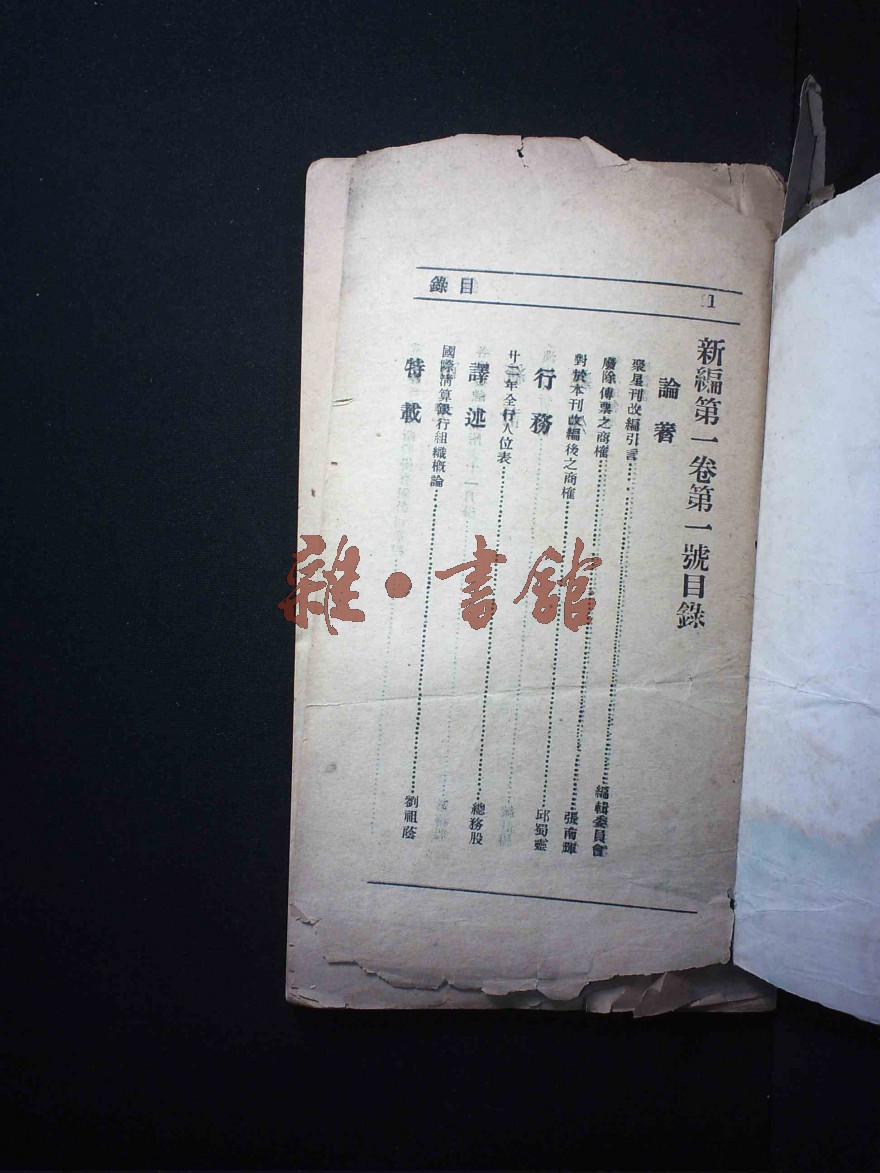 目錄
1
新編第一卷第一號目錄
論著
聚星刊改編引言……編輯委員會
廢除傳票之商榷……張南驊
對於本刊改編後之商榷……邱蜀靈
行務
廿二年全行人位表……總務股
譯述
國際清算銀行組織概論……劉祖蔭
特載
雜·書館